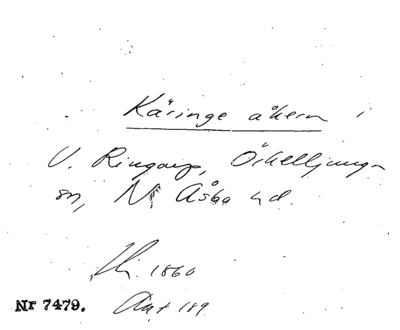 Käringe åkern i
V. Ringarp, Örkelljunga
sn, N Åsbo hd.
1860
Nr 7479. Akt 189